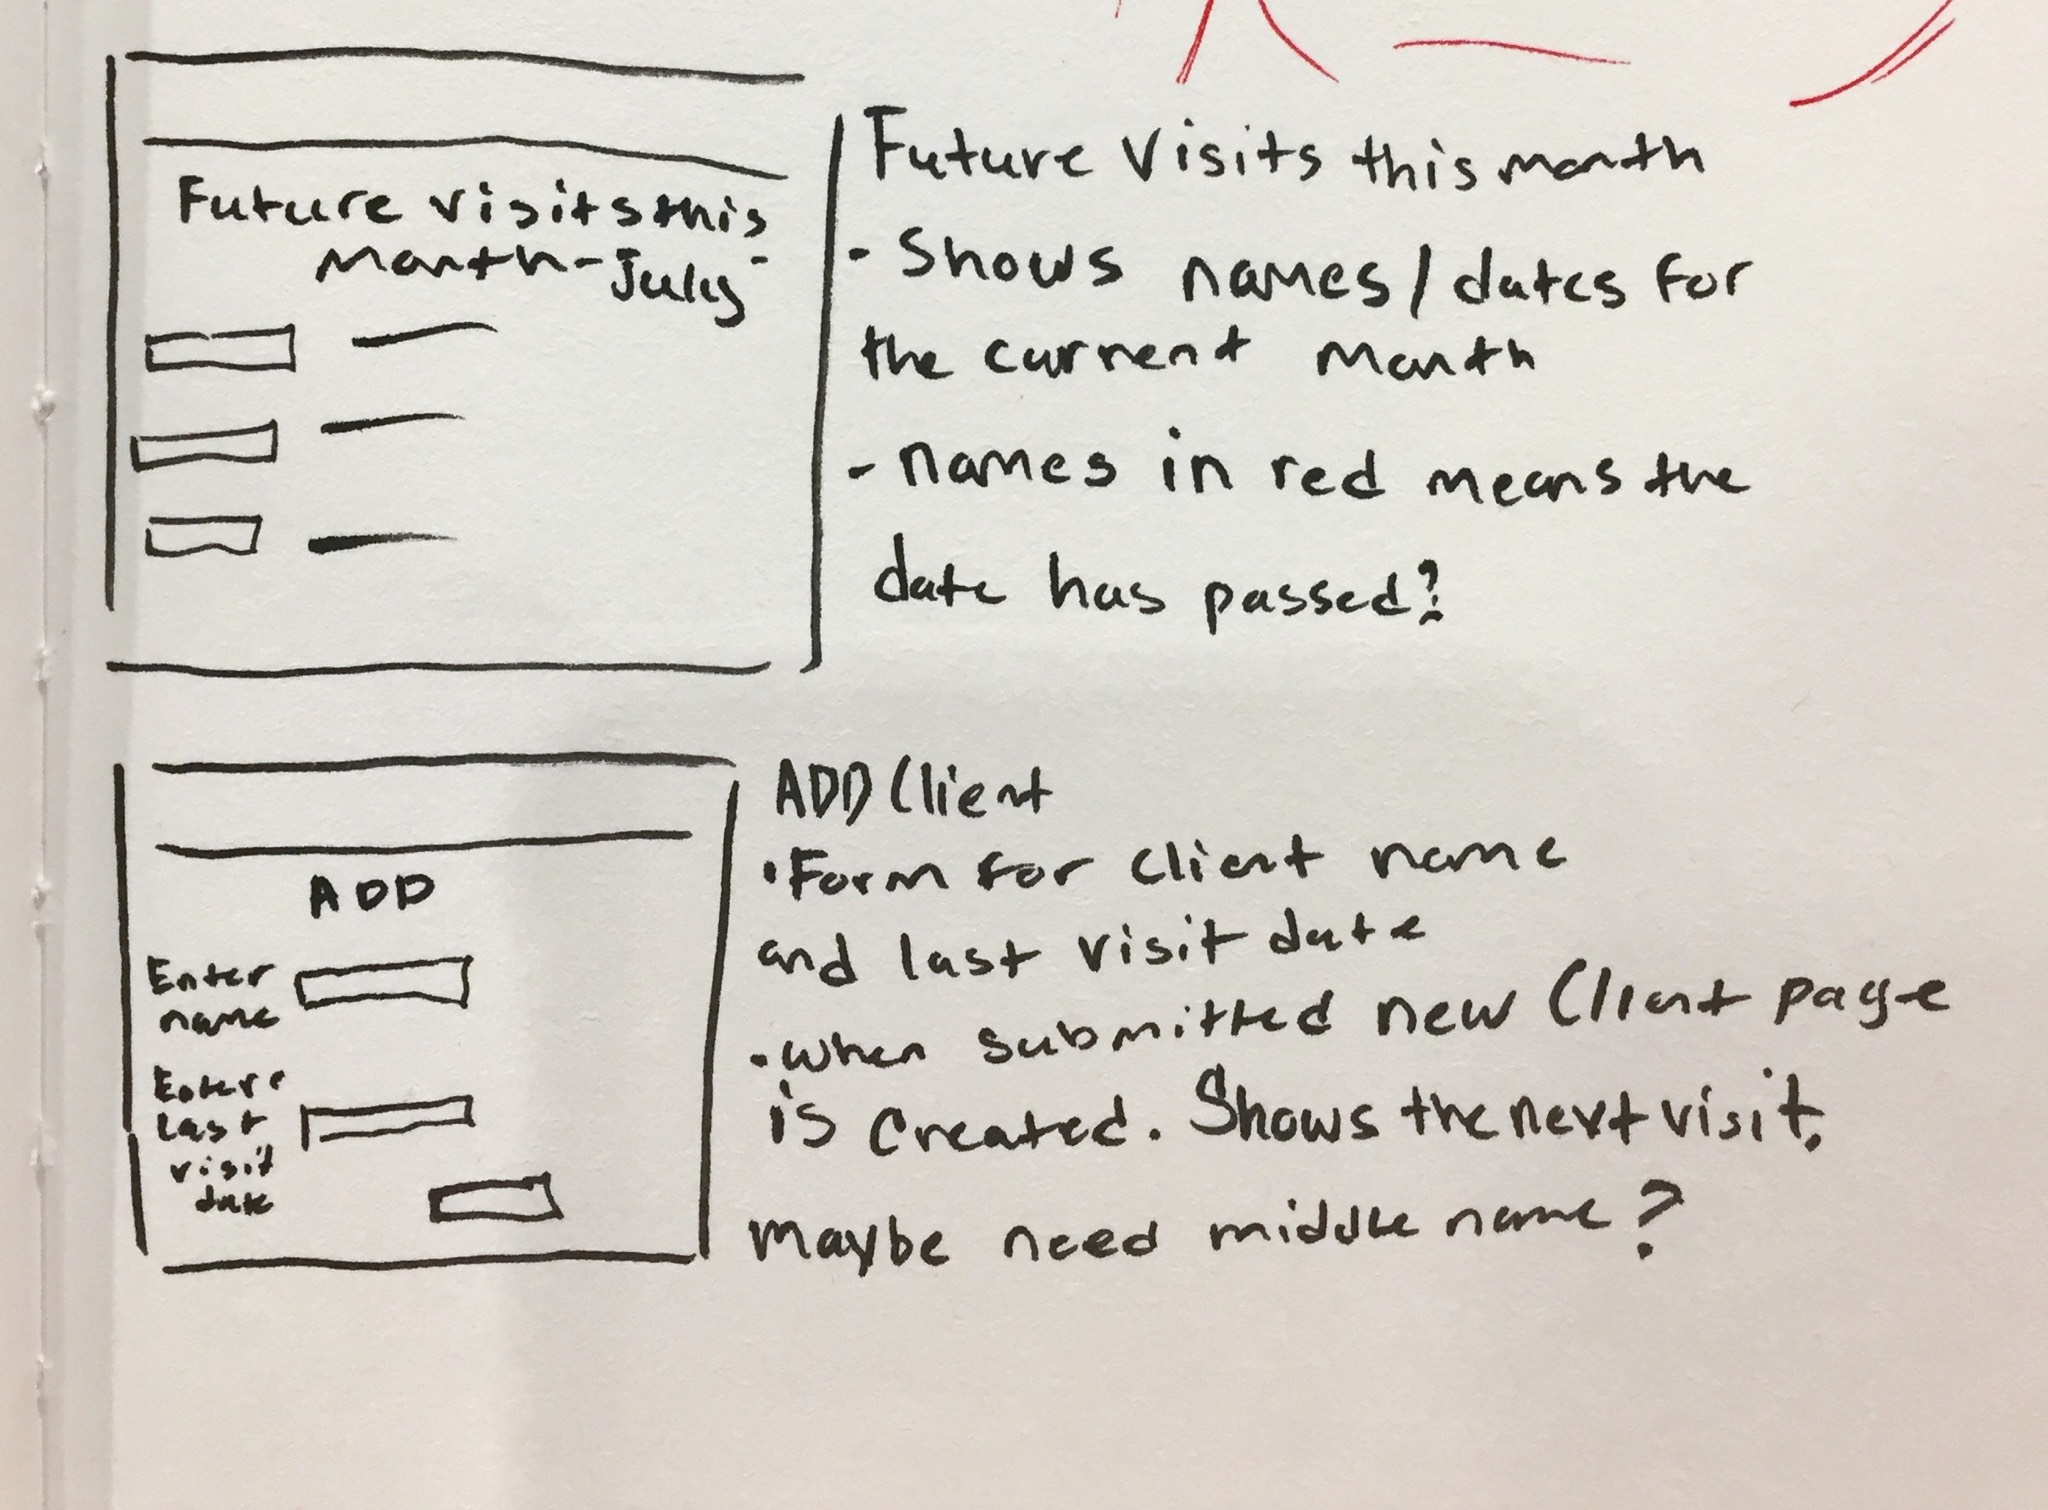 Future visits this
Month - July -
Future Visits this month
- Shows names/dates for
the current Month
- names in red means the
date has passed?
ADD
Enter
name
Enter
last
visit
date
ADD Client
• Form for client name
and last visit date
• when submitted new Client page
is created. Shows the next visit.
maybe need middle name?